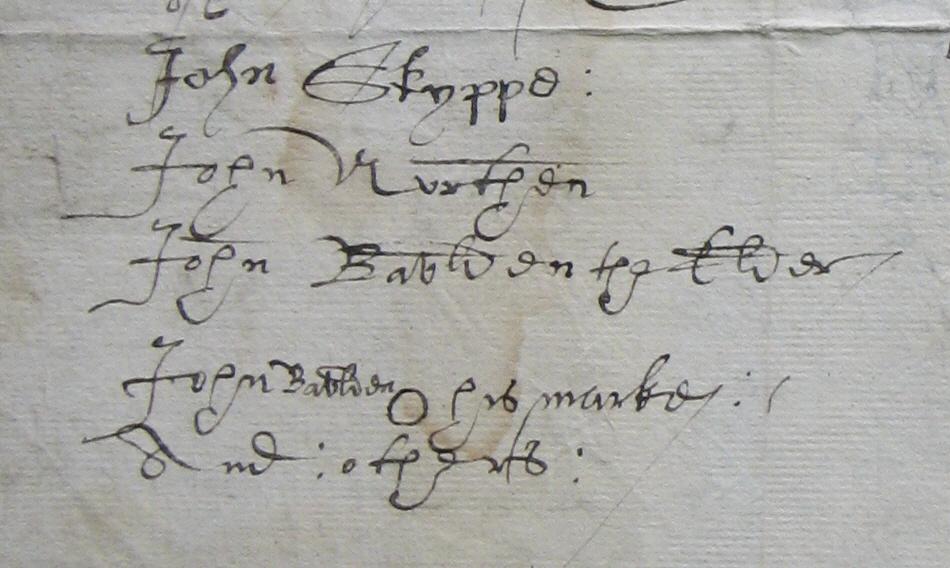 John Skyppe :
John Nurthen
John Babbden the Elder
John Babbden O his marke :
And : others :